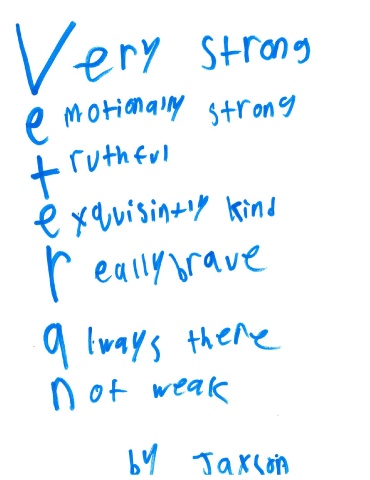 Very strong
emotionally strong
truthful
exquisintly kind
really brave
always there
not weak
by Jaxson